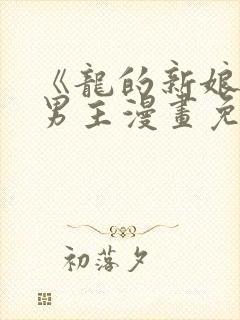 《龍的新娘
男主漫畫免
初落夕